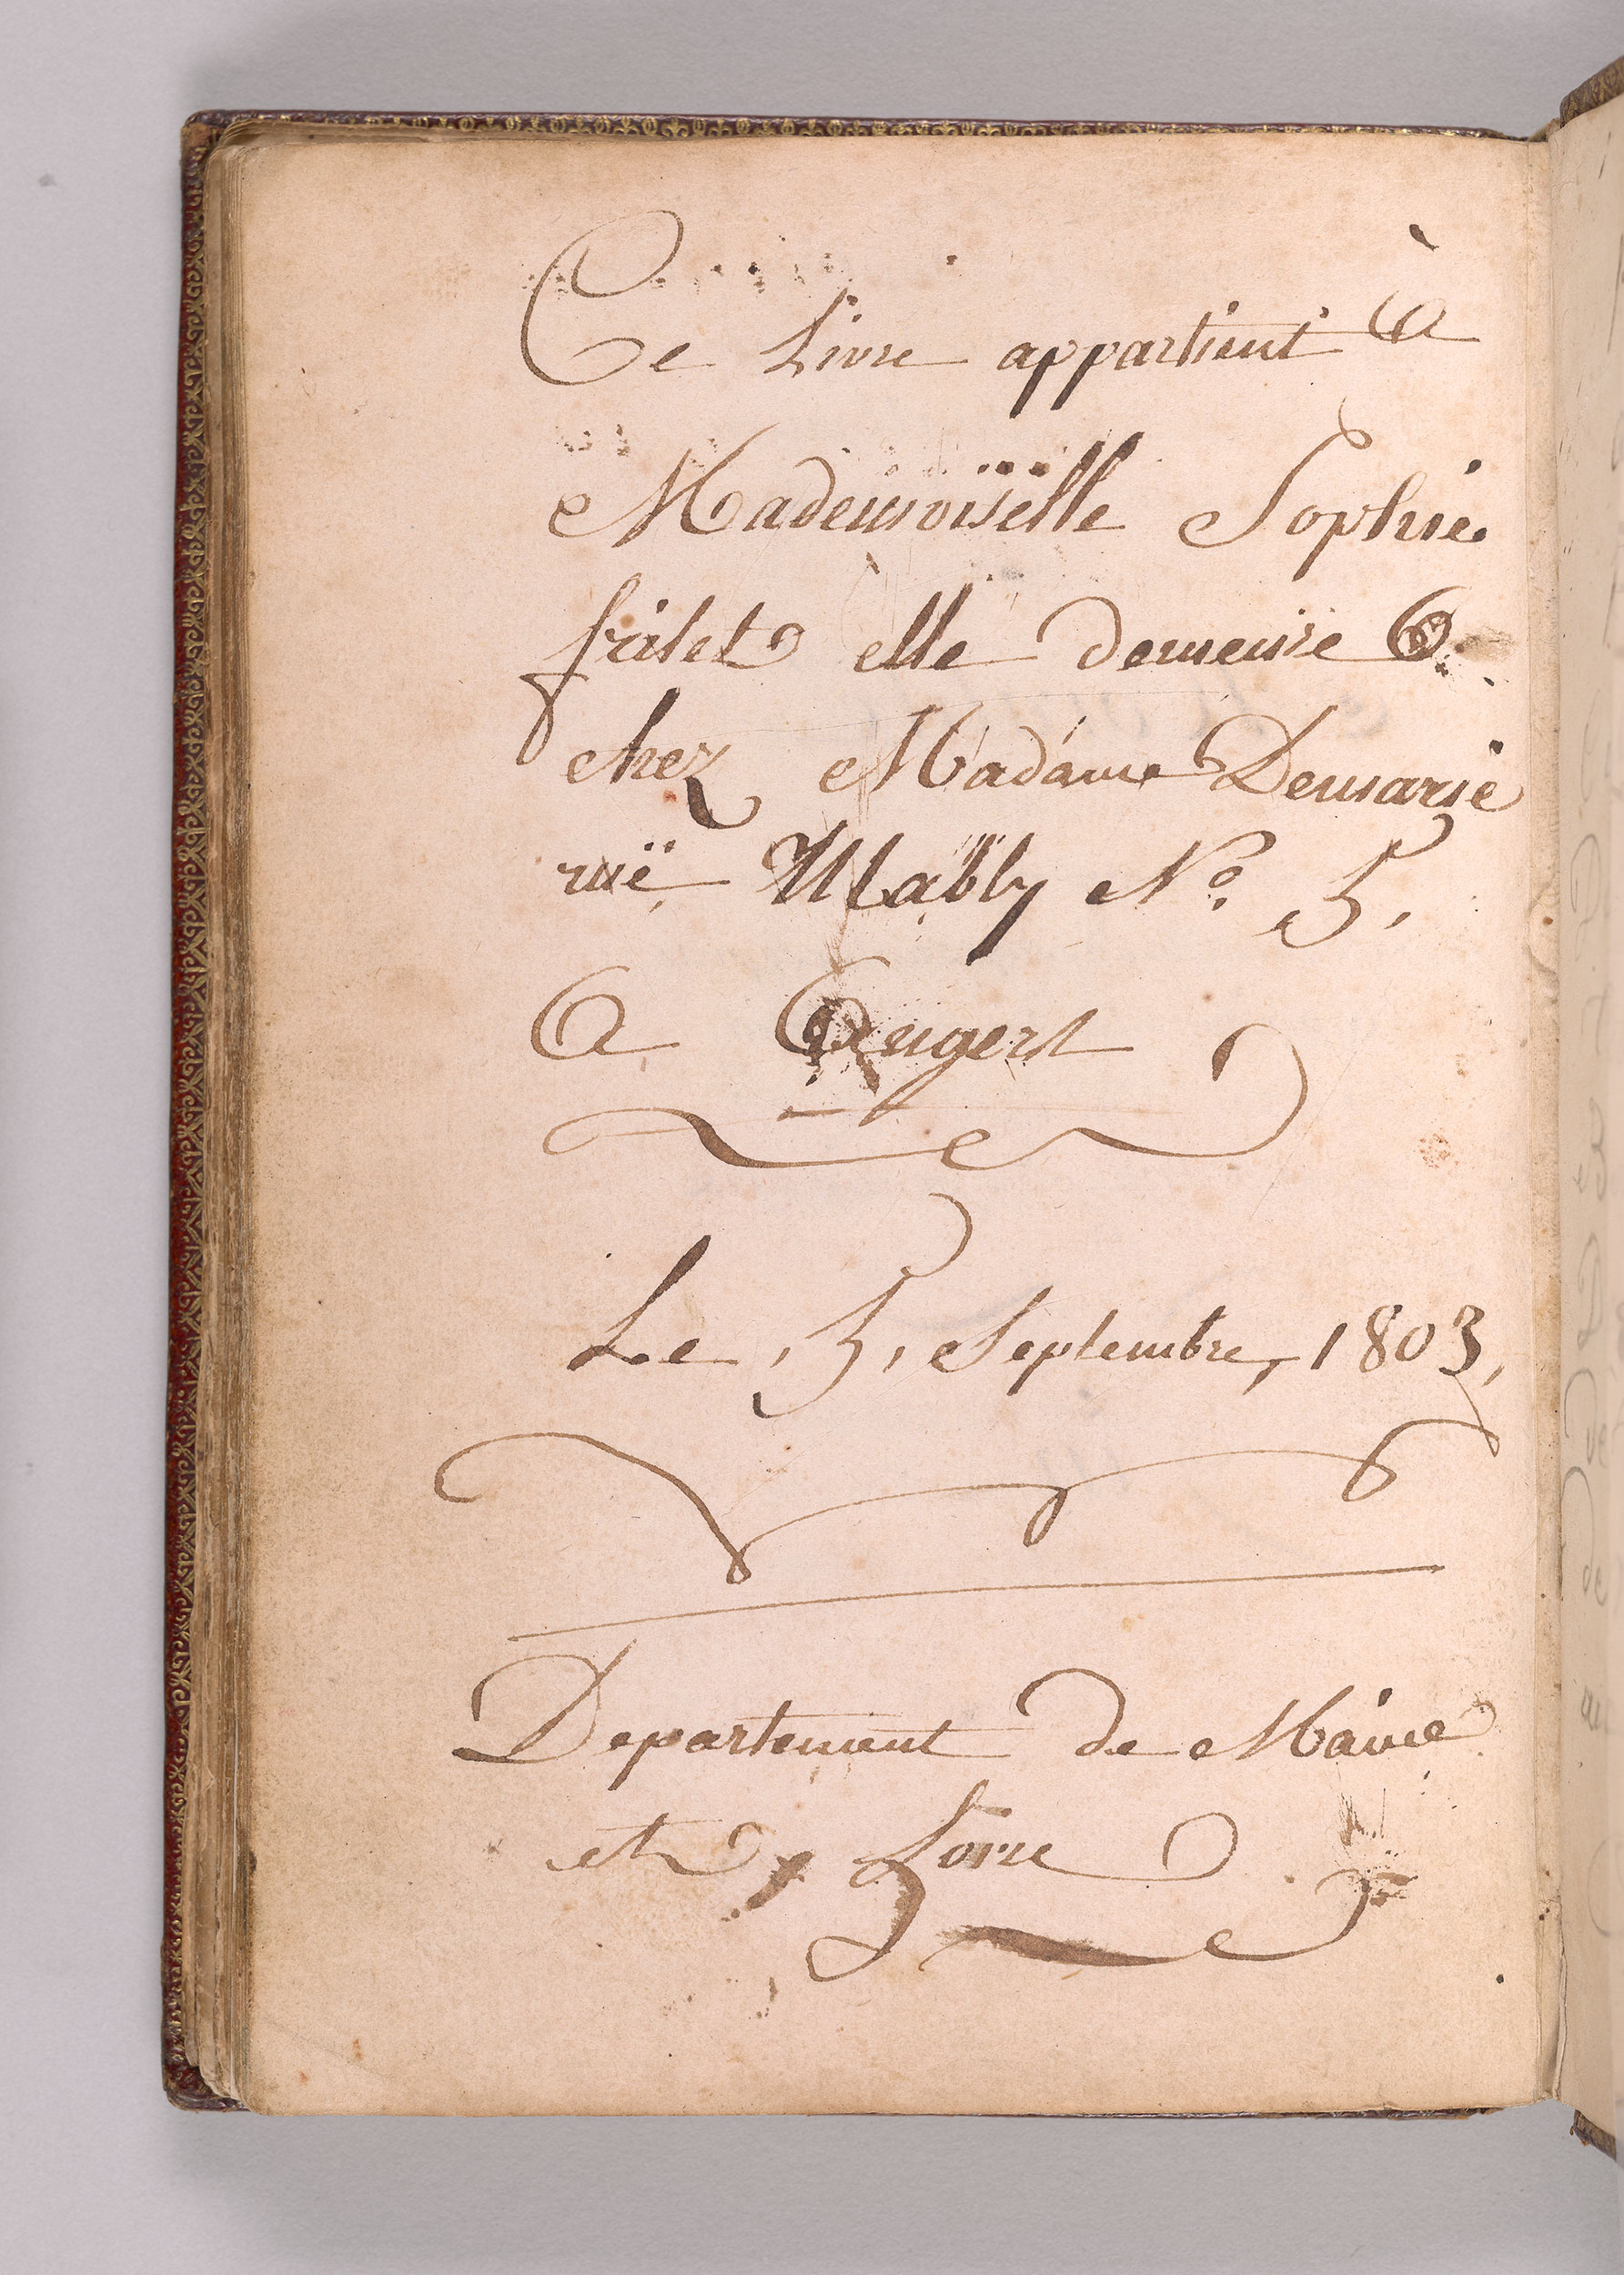 Ce Livre appartient à
Mademoiselle Sophie
frilet elle demeure
chez Madame Demarie
ruë Mably N.º 5.
A Angers
Le, 5, Septembre, 1803,
Departement de Maine
et Loire